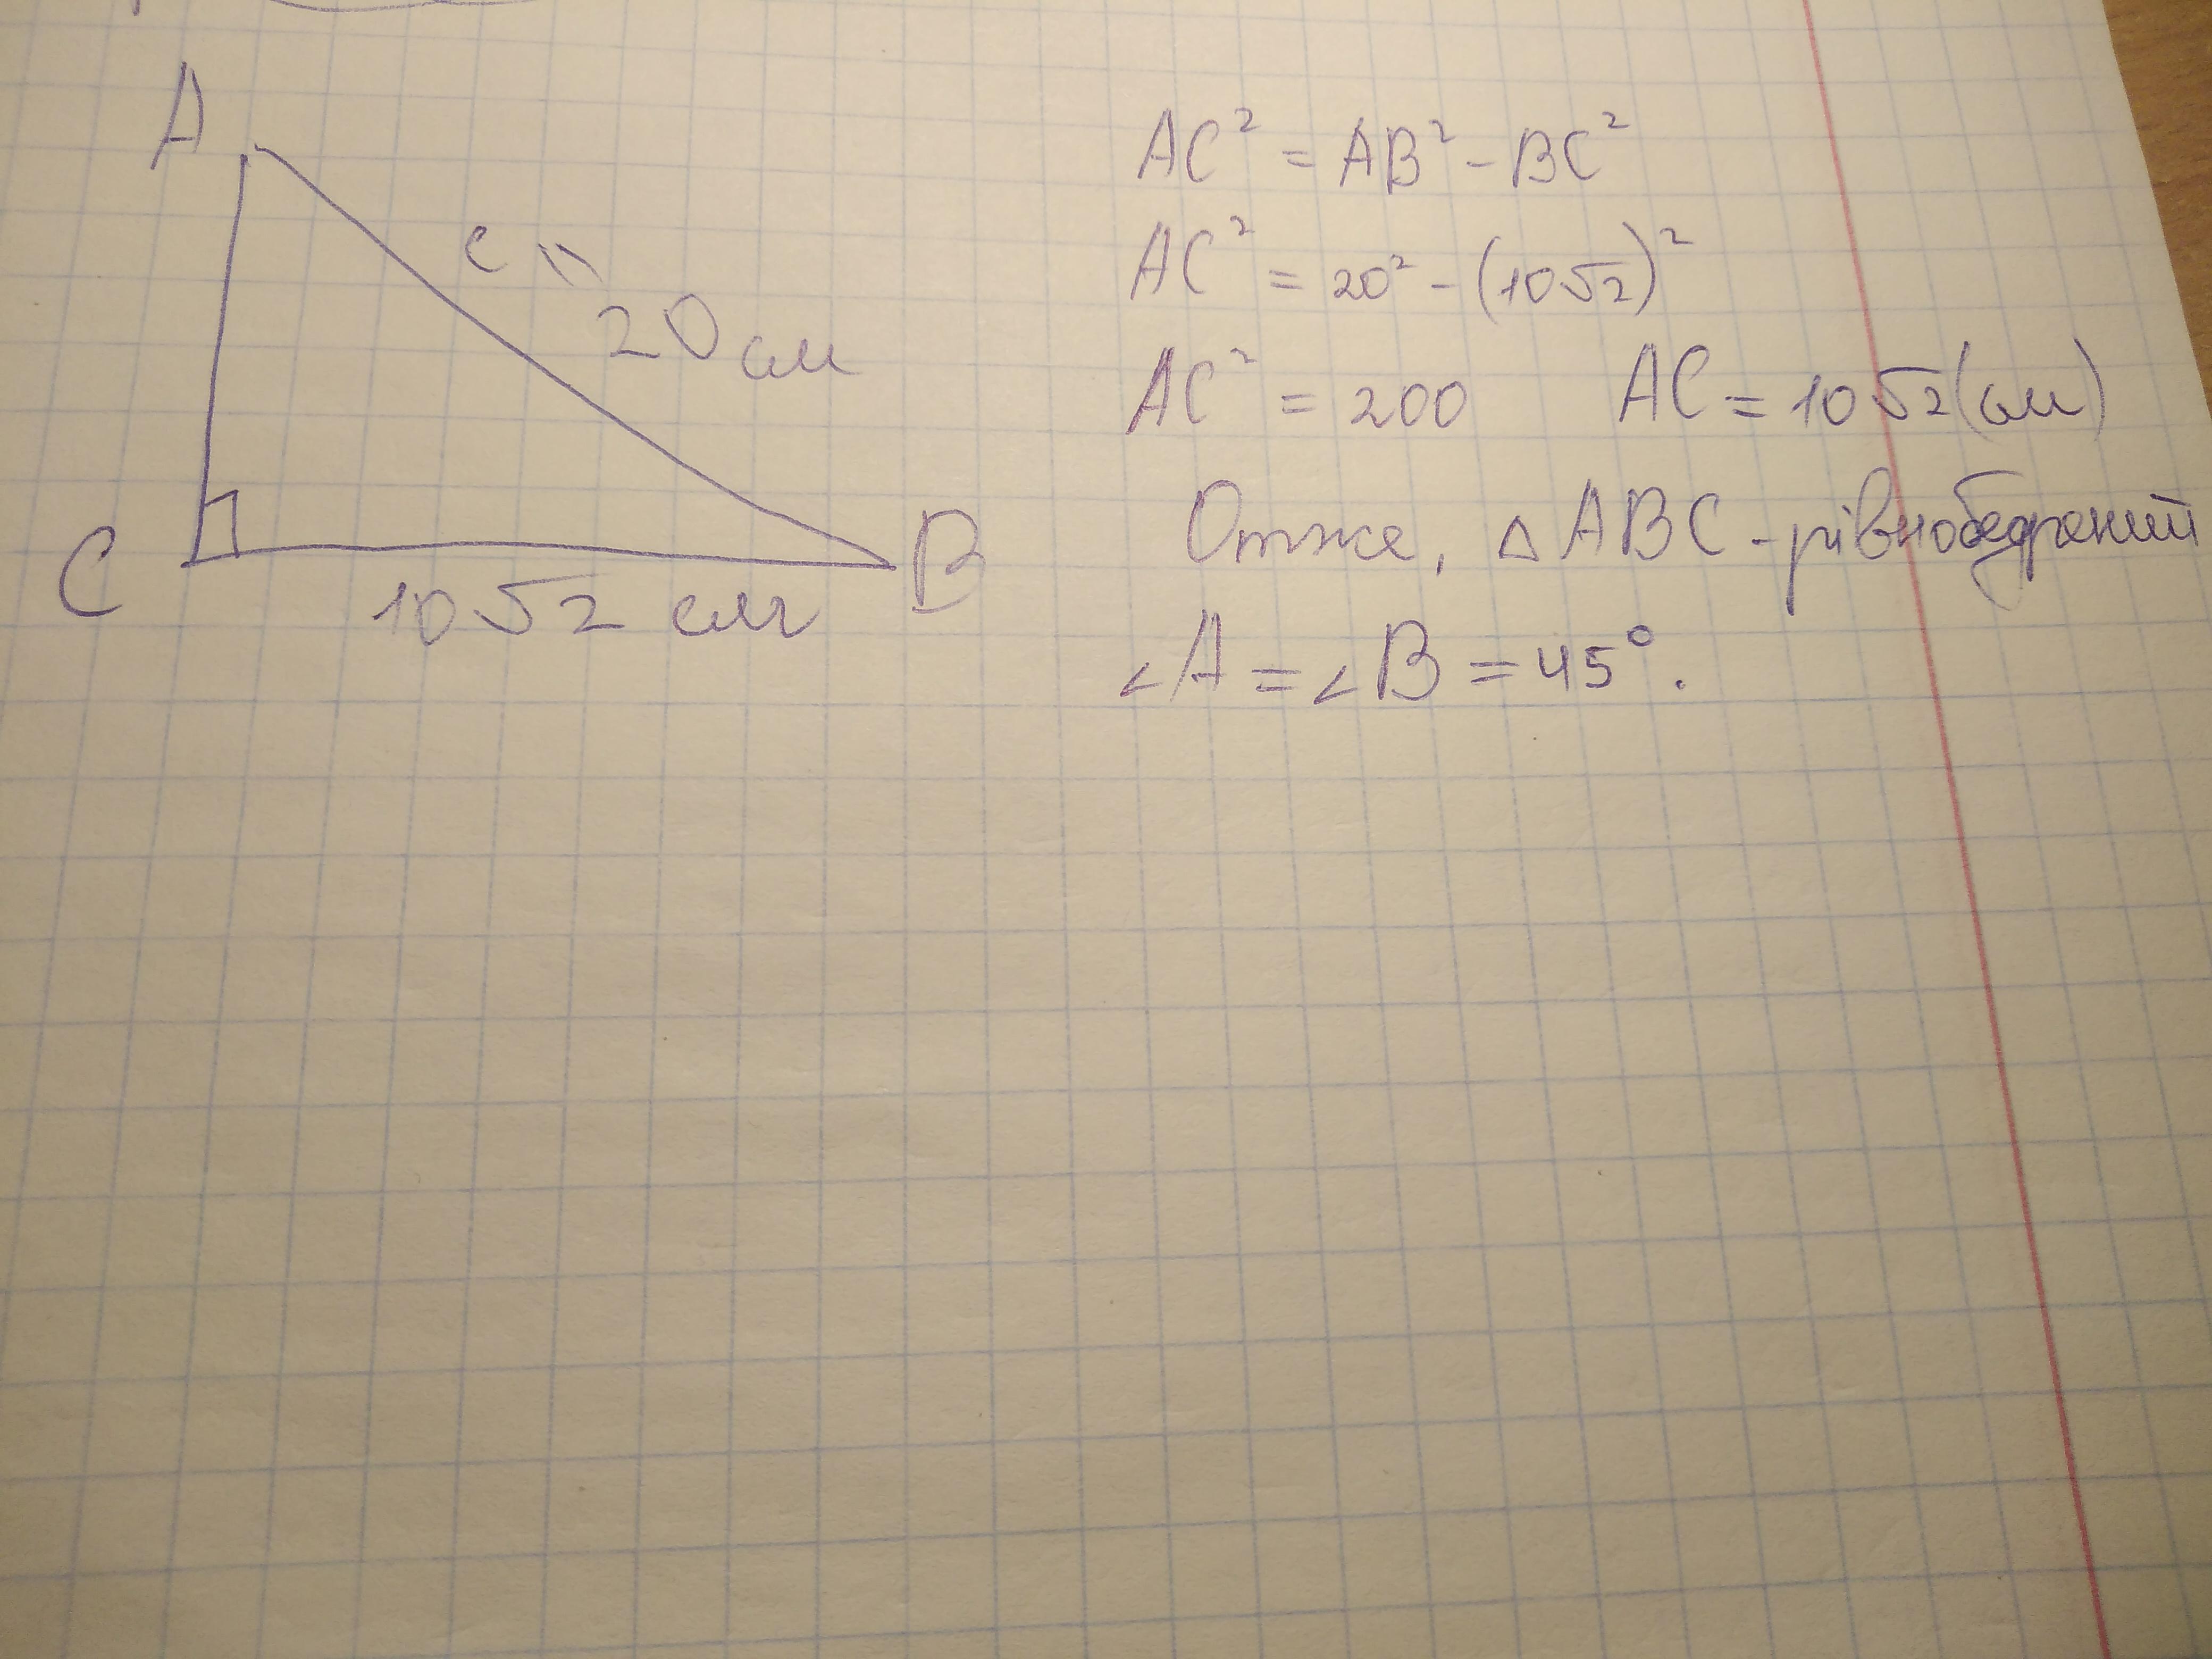 A
c =
20 см
C
B
10√2 см
AC² = AB² - BC²
AC² = 20² - (10√2)²
AC² = 200 AC = 10√2 (см)
Отже, △ABC - рівнобедрений
∠A = ∠B = 45°.